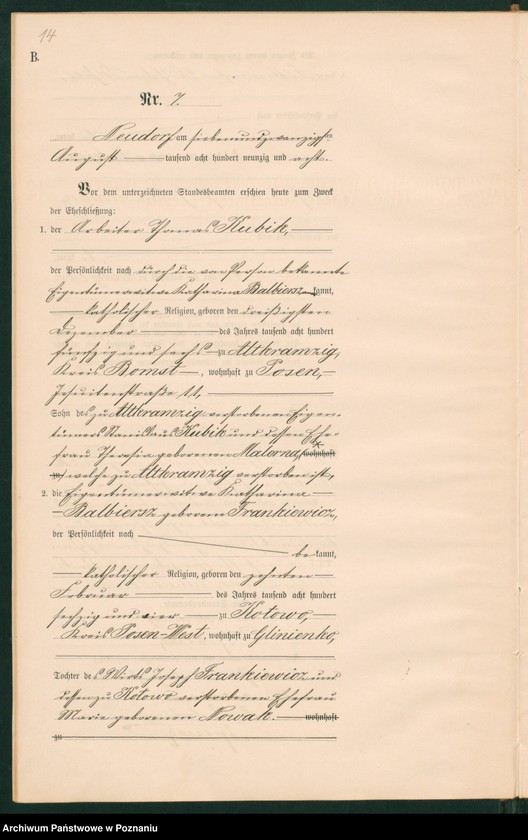 14
B.
Nr. 7.
Neudorf am siebenundzwanzigsten
August tausend acht hundert neunzig und acht.
Vor dem unterzeichneten Standesbeamten erschien heute zum Zweck
der Eheschließung:
1. der Arbeiter Thomas Kubik,
der Persönlichkeit nach durch die von Person bekannte
Eigentümerwitwe Katharina Balbierz kannt,
katholischer Religion, geboren den dreißigsten
Dezember des Jahres tausend acht hundert
fünfzig und sechs zu Altkramzig,
Kreis Bomst, wohnhaft zu Posen,
Jesuitenstraße 11,
Sohn des zu Altkramzig verstorbenen Eigen-
tümers Stanislaus Kubik und dessen Ehe-
frau Theresia geborenen Matorna, wohnhaft
zu welche zu Altkramzig verstorben ist,
2. die Eigentümerwitwe Katharina
Balbiersz geborene Frankiewicz,
der Persönlichkeit nach
bekannt,
katholischer Religion, geboren den zehnten
Februar des Jahres tausend acht hundert
sechzig und vier zu Kotowo,
Kreis Posen-West, wohnhaft zu Glinienko,
Tochter des Wirts Joseph Frankiewicz und
dessen zu Kotowo verstorbenen Ehefrau
Marie geborenen Nowak. wohnhaft
zu
Archiwum Państwowe w Poznaniu